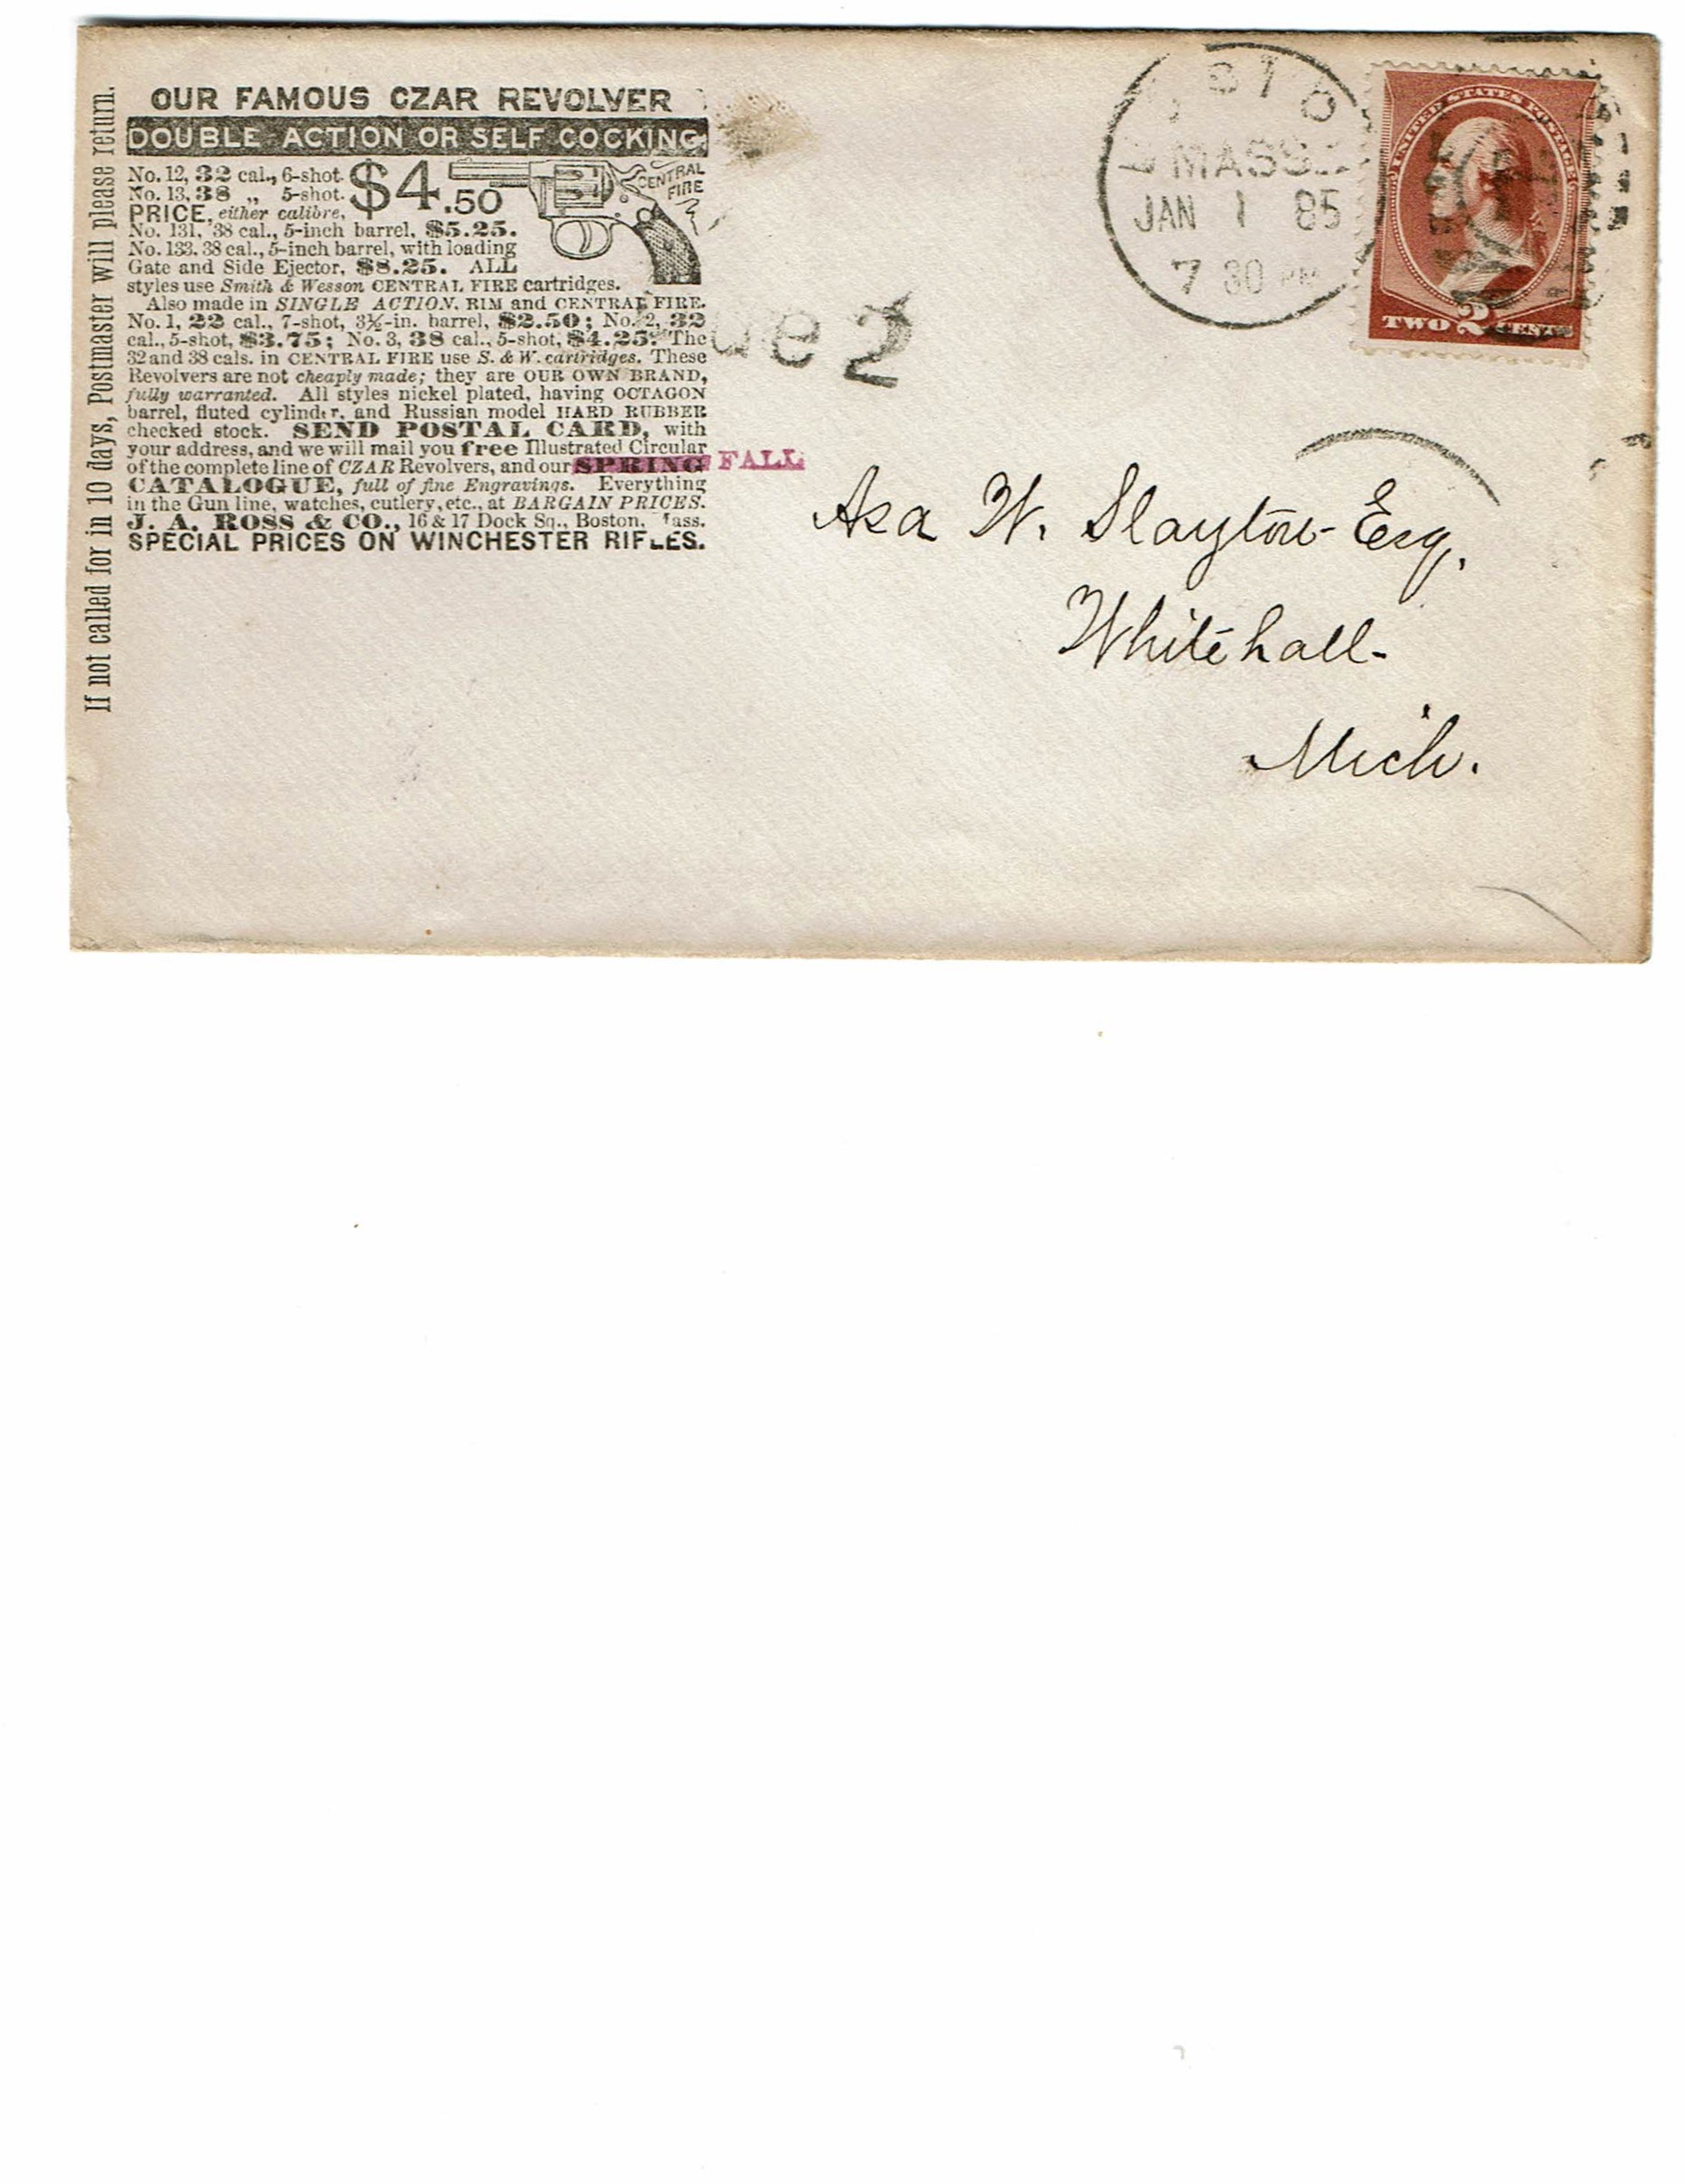 If not called for in 10 days, Postmaster will please return.
OUR FAMOUS CZAR REVOLVER
DOUBLE ACTION OR SELF COCKING
No. 12, 32 cal., 6-shot.
No. 13, 38 „ 5-shot.
PRICE, either calibre,
$4.50
CENTRAL
FIRE
No. 131, 38 cal., 5-inch barrel, $5.25.
No. 133, 38 cal., 5-inch barrel, with loading
Gate and Side Ejector, $8.25. ALL
styles use Smith & Wesson CENTRAL FIRE cartridges.
Also made in SINGLE ACTION. RIM and CENTRAL FIRE.
No. 1, 22 cal., 7-shot, 3½-in. barrel, $2.50; No. 2, 32
cal., 5-shot, $3.75; No. 3, 38 cal., 5-shot, $4.25. The
32 and 38 cals. in CENTRAL FIRE use S. & W. cartridges. These
Revolvers are not cheaply made; they are OUR OWN BRAND,
fully warranted. All styles nickel plated, having OCTAGON
barrel, fluted cylinder, and Russian model HARD RUBBER
checked stock. SEND POSTAL CARD, with
your address, and we will mail you free Illustrated Circular
of the complete line of CZAR Revolvers, and our SPRING FALL
CATALOGUE, full of fine Engravings. Everything
in the Gun line, watches, cutlery, etc., at BARGAIN PRICES.
J. A. ROSS & CO., 16 & 17 Dock Sq., Boston, Mass.
SPECIAL PRICES ON WINCHESTER RIFLES.
ue 2
MASS.
JAN 1 85
7 30 PM
UNITED STATES POSTAGE
TWO 2 CENTS
Asa W. Slayton Esq.
Whitehall-
Mich.